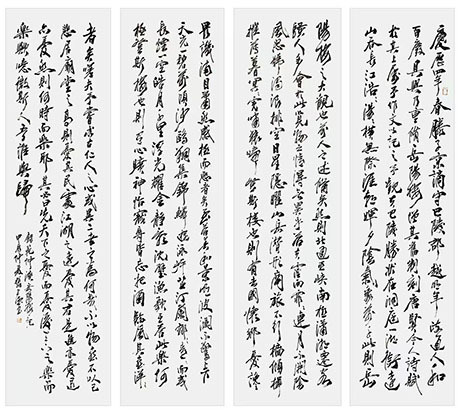 慶曆四年春滕子京謫守巴陵郡越明年政通人和
百廢具興乃重修岳陽樓增其舊制刻唐賢今人詩賦
於其上屬予作文以記之予觀夫巴陵勝狀在洞庭一湖銜遠
山吞長江浩浩湯湯橫無際涯朝暉夕陰氣象萬千此則岳
陽樓之大觀也前人之述備矣然則北通巫峽南極瀟湘遷客
騷人多會於此覽物之情得無異乎若夫霪雨霏霏連月不開陰
風怒號濁浪排空日星隱曜山岳潛形商旅不行檣傾楫
摧薄暮冥冥虎嘯猿啼登斯樓也則有去國懷鄉憂讒
畏譏滿目蕭然感極而悲者矣至若春和景明波瀾不驚上下
天光一碧萬頃沙鷗翔集錦鱗游泳岸芷汀蘭郁郁青青而或
長煙一空皓月千里浮光躍金靜影沈璧漁歌互答此樂何
極登斯樓也則有心曠神怡寵辱皆忘把酒臨風其喜洋洋
者矣嗟夫予嘗求古仁人之心或異二者之為何哉不以物喜不以己
悲居廟堂之高則憂其民處江湖之遠則憂其君是進亦憂退
亦憂然則何時而樂耶其必曰先天下之憂而憂後天下之樂而
樂歟噫微斯人吾誰與歸
錄范仲淹岳陽樓記